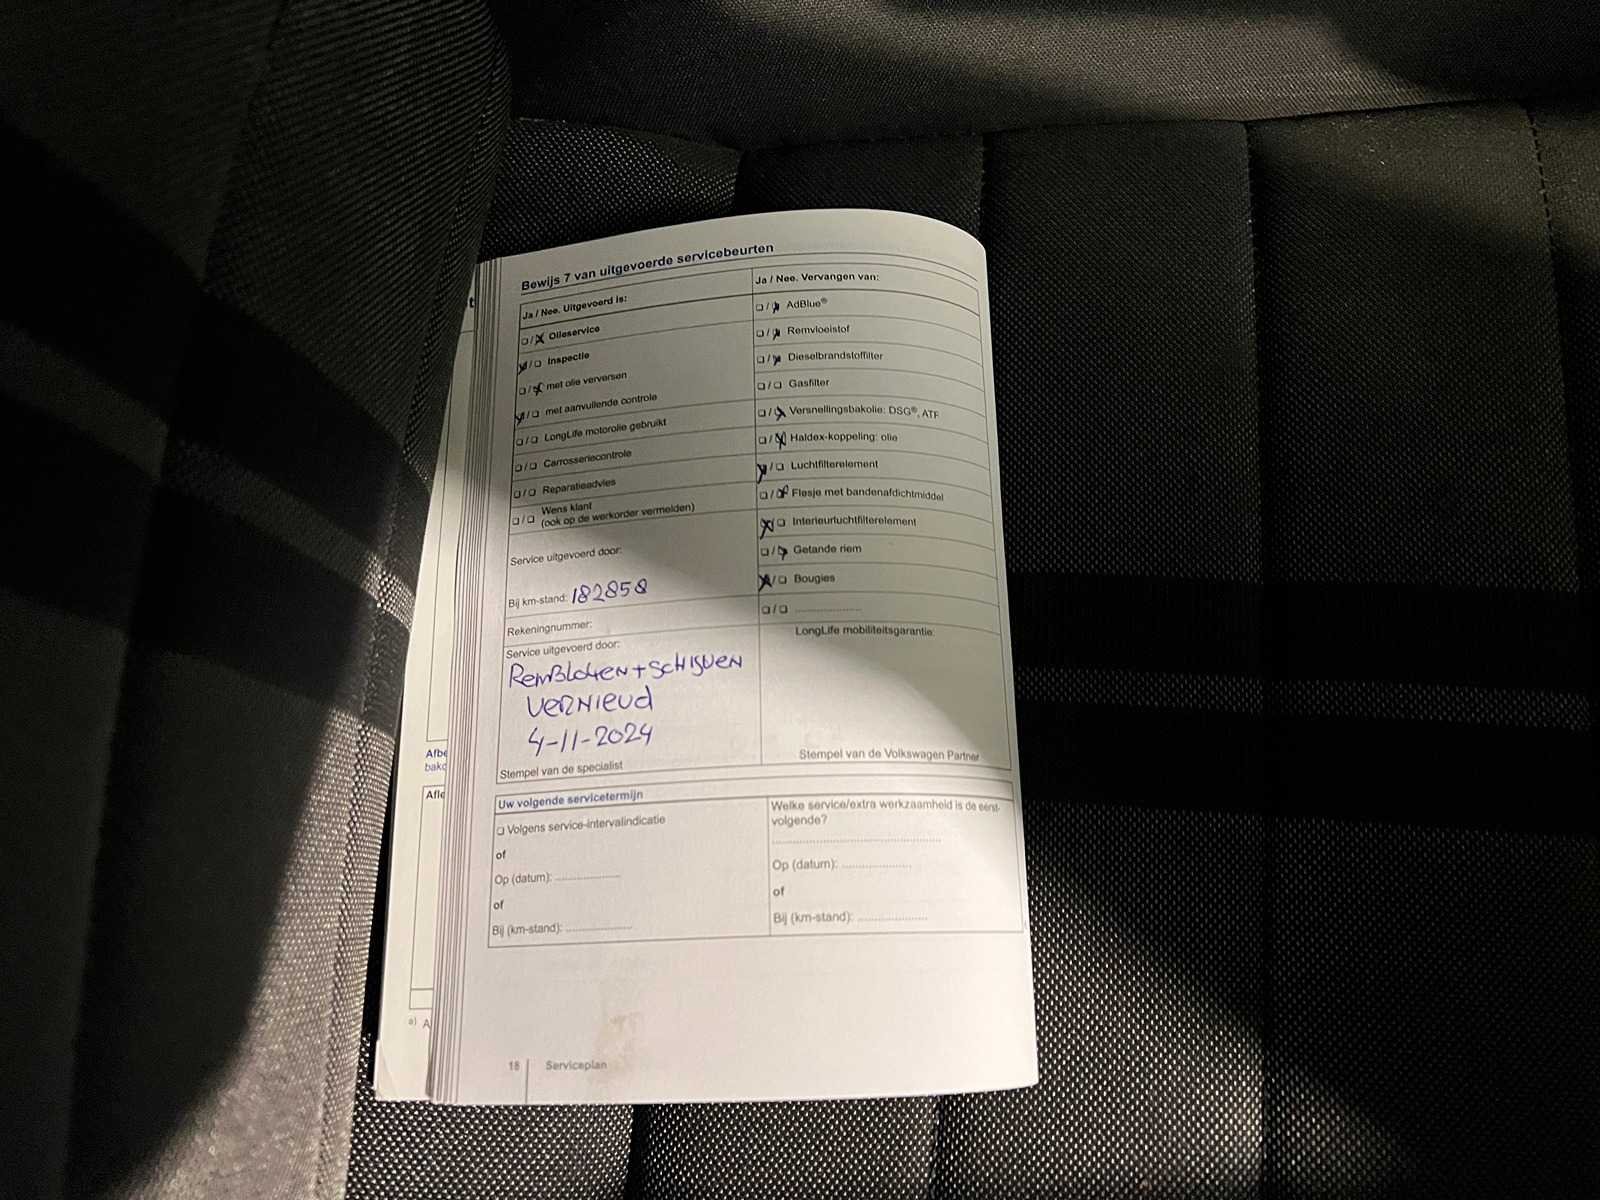 Bewijs 7 van uitgevoerde servicebeurten
Ja / Nee. Uitgevoerd is:
❏ / ❏ Olieservice
❏ / ❏ Inspectie
❏ / ❏ met olie verversen
❏ / ❏ met aanvullende controle
❏ / ❏ LongLife motorolie gebruikt
❏ / ❏ Carrosseriecontrole
❏ / ❏ Reparatieadvies
❏ / ❏ Wens klant
(ook op de werkorder vermelden)
Service uitgevoerd door:
Bij km-stand: 182858
Rekeningnummer:
Service uitgevoerd door:
RemBloken + schijven
vernieud
4-11-2024
Stempel van de specialist
Ja / Nee. Vervangen van:
❏ / ❏ AdBlue®
❏ / ❏ Remvloeistof
❏ / ❏ Dieselbrandstoffilter
❏ / ❏ Gasfilter
❏ / ❏ Versnellingsbakolie: DSG®, ATF
❏ / ❏ Haldex-koppeling: olie
❏ / ❏ Luchtfilterelement
❏ / ❏ Flesje met bandenafdichtmiddel
❏ / ❏ Interieurluchtfilterelement
❏ / ❏ Getande riem
❏ / ❏ Bougies
❏ / ❏ ....................
LongLife mobiliteitsgarantie:
Stempel van de Volkswagen Partner
Uw volgende servicetermijn
❏ Volgens service-intervalindicatie
of
Op (datum): ....................
of
Bij (km-stand): ....................
Welke service/extra werkzaamheid is de eerst-
volgende?
..................................................
Op (datum): ....................
of
Bij (km-stand): ....................
18 Serviceplan
Afbe
bakc
Afle
a) A